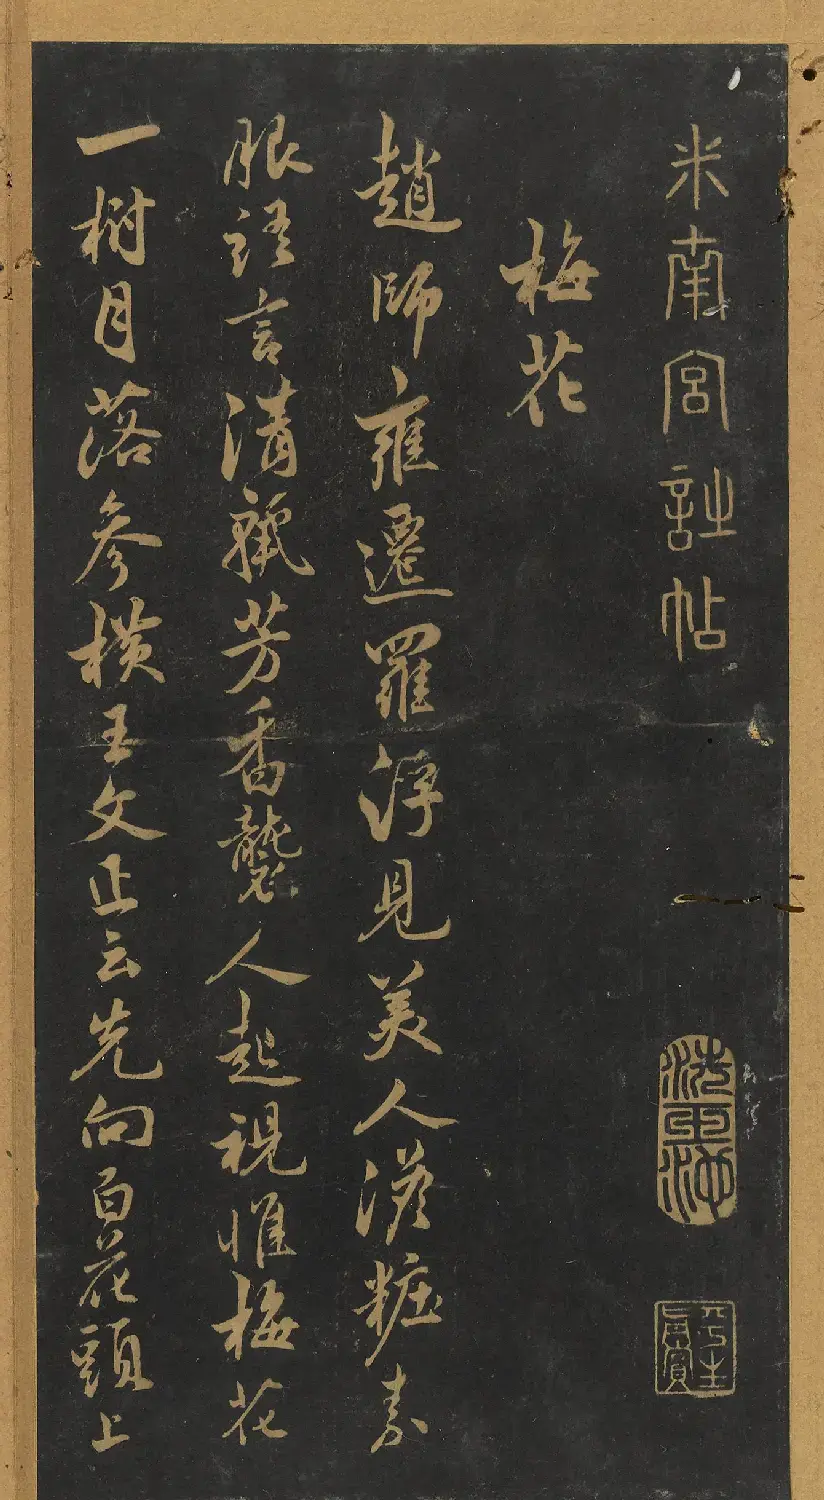 米南宮詩帖
洗玉池
平生真賞
梅花
趙師雍遷羅浮見美人淡粧素
服語言清芳香襲人起視惟梅花
一樹月落參橫王文正云先向百花頭上